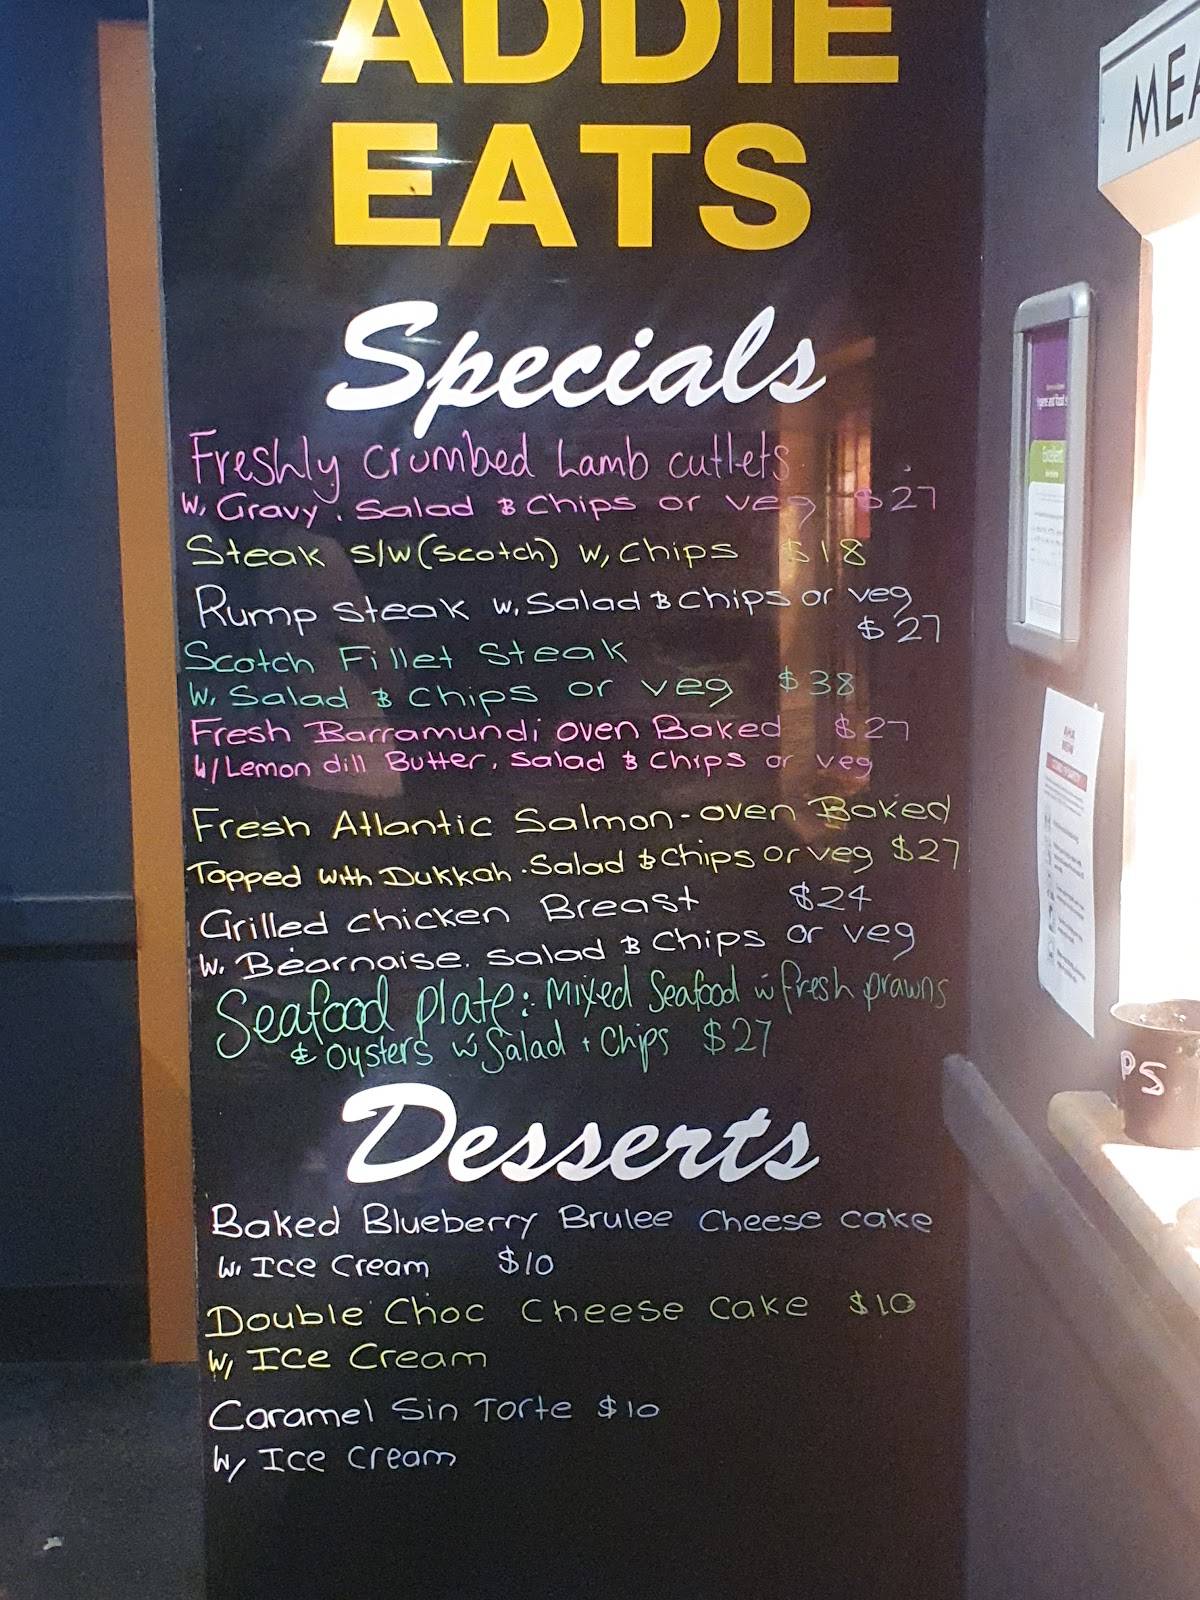 ADDIE
EATS
Specials
Freshly Crumbed Lamb cutlets
W, Gravy, Salad & Chips or veg $27
Steak s/w (Scotch) w, Chips $18
Rump Steak w, Salad & Chips or veg
$27
Scotch Fillet Steak
W, Salad & Chips or veg $38
Fresh Barramundi oven Baked $27
W/ Lemon dill Butter, Salad & Chips or veg
Fresh Atlantic Salmon - oven Baked
Topped with Dukkah. Salad & Chips or veg $27
Grilled Chicken Breast $24
W, Béarnaise, Salad & Chips or veg
Seafood plate: Mixed Seafood w fresh prawns
& Oysters w Salad + Chips $27
Desserts
Baked Blueberry Brulee Cheese cake
W, Ice Cream $10
Double Choc Cheese Cake $10
W/ Ice Cream
Caramel Sin Torte $10
W/ Ice Cream
MEA
Excellent
PS